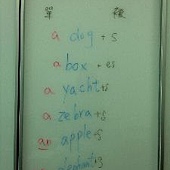 單 複
a dog + s
a box + es
a yacht +s
a zebra +s
an apple +s
elephant +s